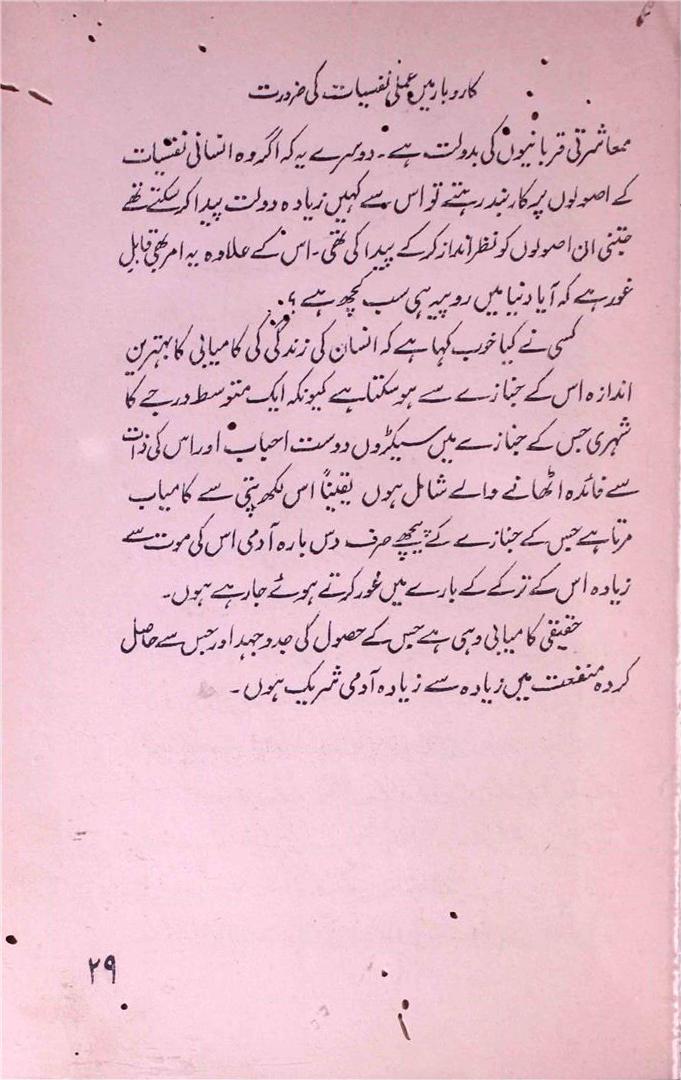 کاروبار میں عملی نفسیات کی ضرورت
معاشرتی قربانیوں کی بدولت ہے۔ دوسرے یہ کہ اگر وہ انسانی نفسیات
کے اصولوں پر کاربند رہتے تو اس سے کہیں زیادہ دولت پیدا کر سکتے تھے
جتنی ان اصولوں کو نظر انداز کر کے پیدا کی تھی۔ اس کے علاوہ یہ امر بھی قابلِ
غور ہے کہ آیا دنیا میں روپیہ ہی سب کچھ ہے ؟
کسی نے کیا خوب کہا ہے کہ انسان کی زندگی کی کامیابی کا بہترین
اندازہ اس کے جنازے سے ہو سکتا ہے کیونکہ ایک متوسط درجے کا
شہری جس کے جنازے میں سیکڑوں دوست احباب اور اس کی ذات
سے فائدہ اٹھانے والے شامل ہوں یقیناً اس لکھ پتی سے کامیاب
مرتا ہے جس کے جنازے کے پیچھے صرف دس بارہ آدمی اس کی موت سے
زیادہ اس کے ترکے کے بارے میں غور کرتے ہوئے جا رہے ہوں۔
حقیقی کامیابی وہی ہے جس کے حصول کی جدوجہد اور جس سے حاصل
کردہ منفعت میں زیادہ سے زیادہ آدمی شریک ہوں۔
۲۹